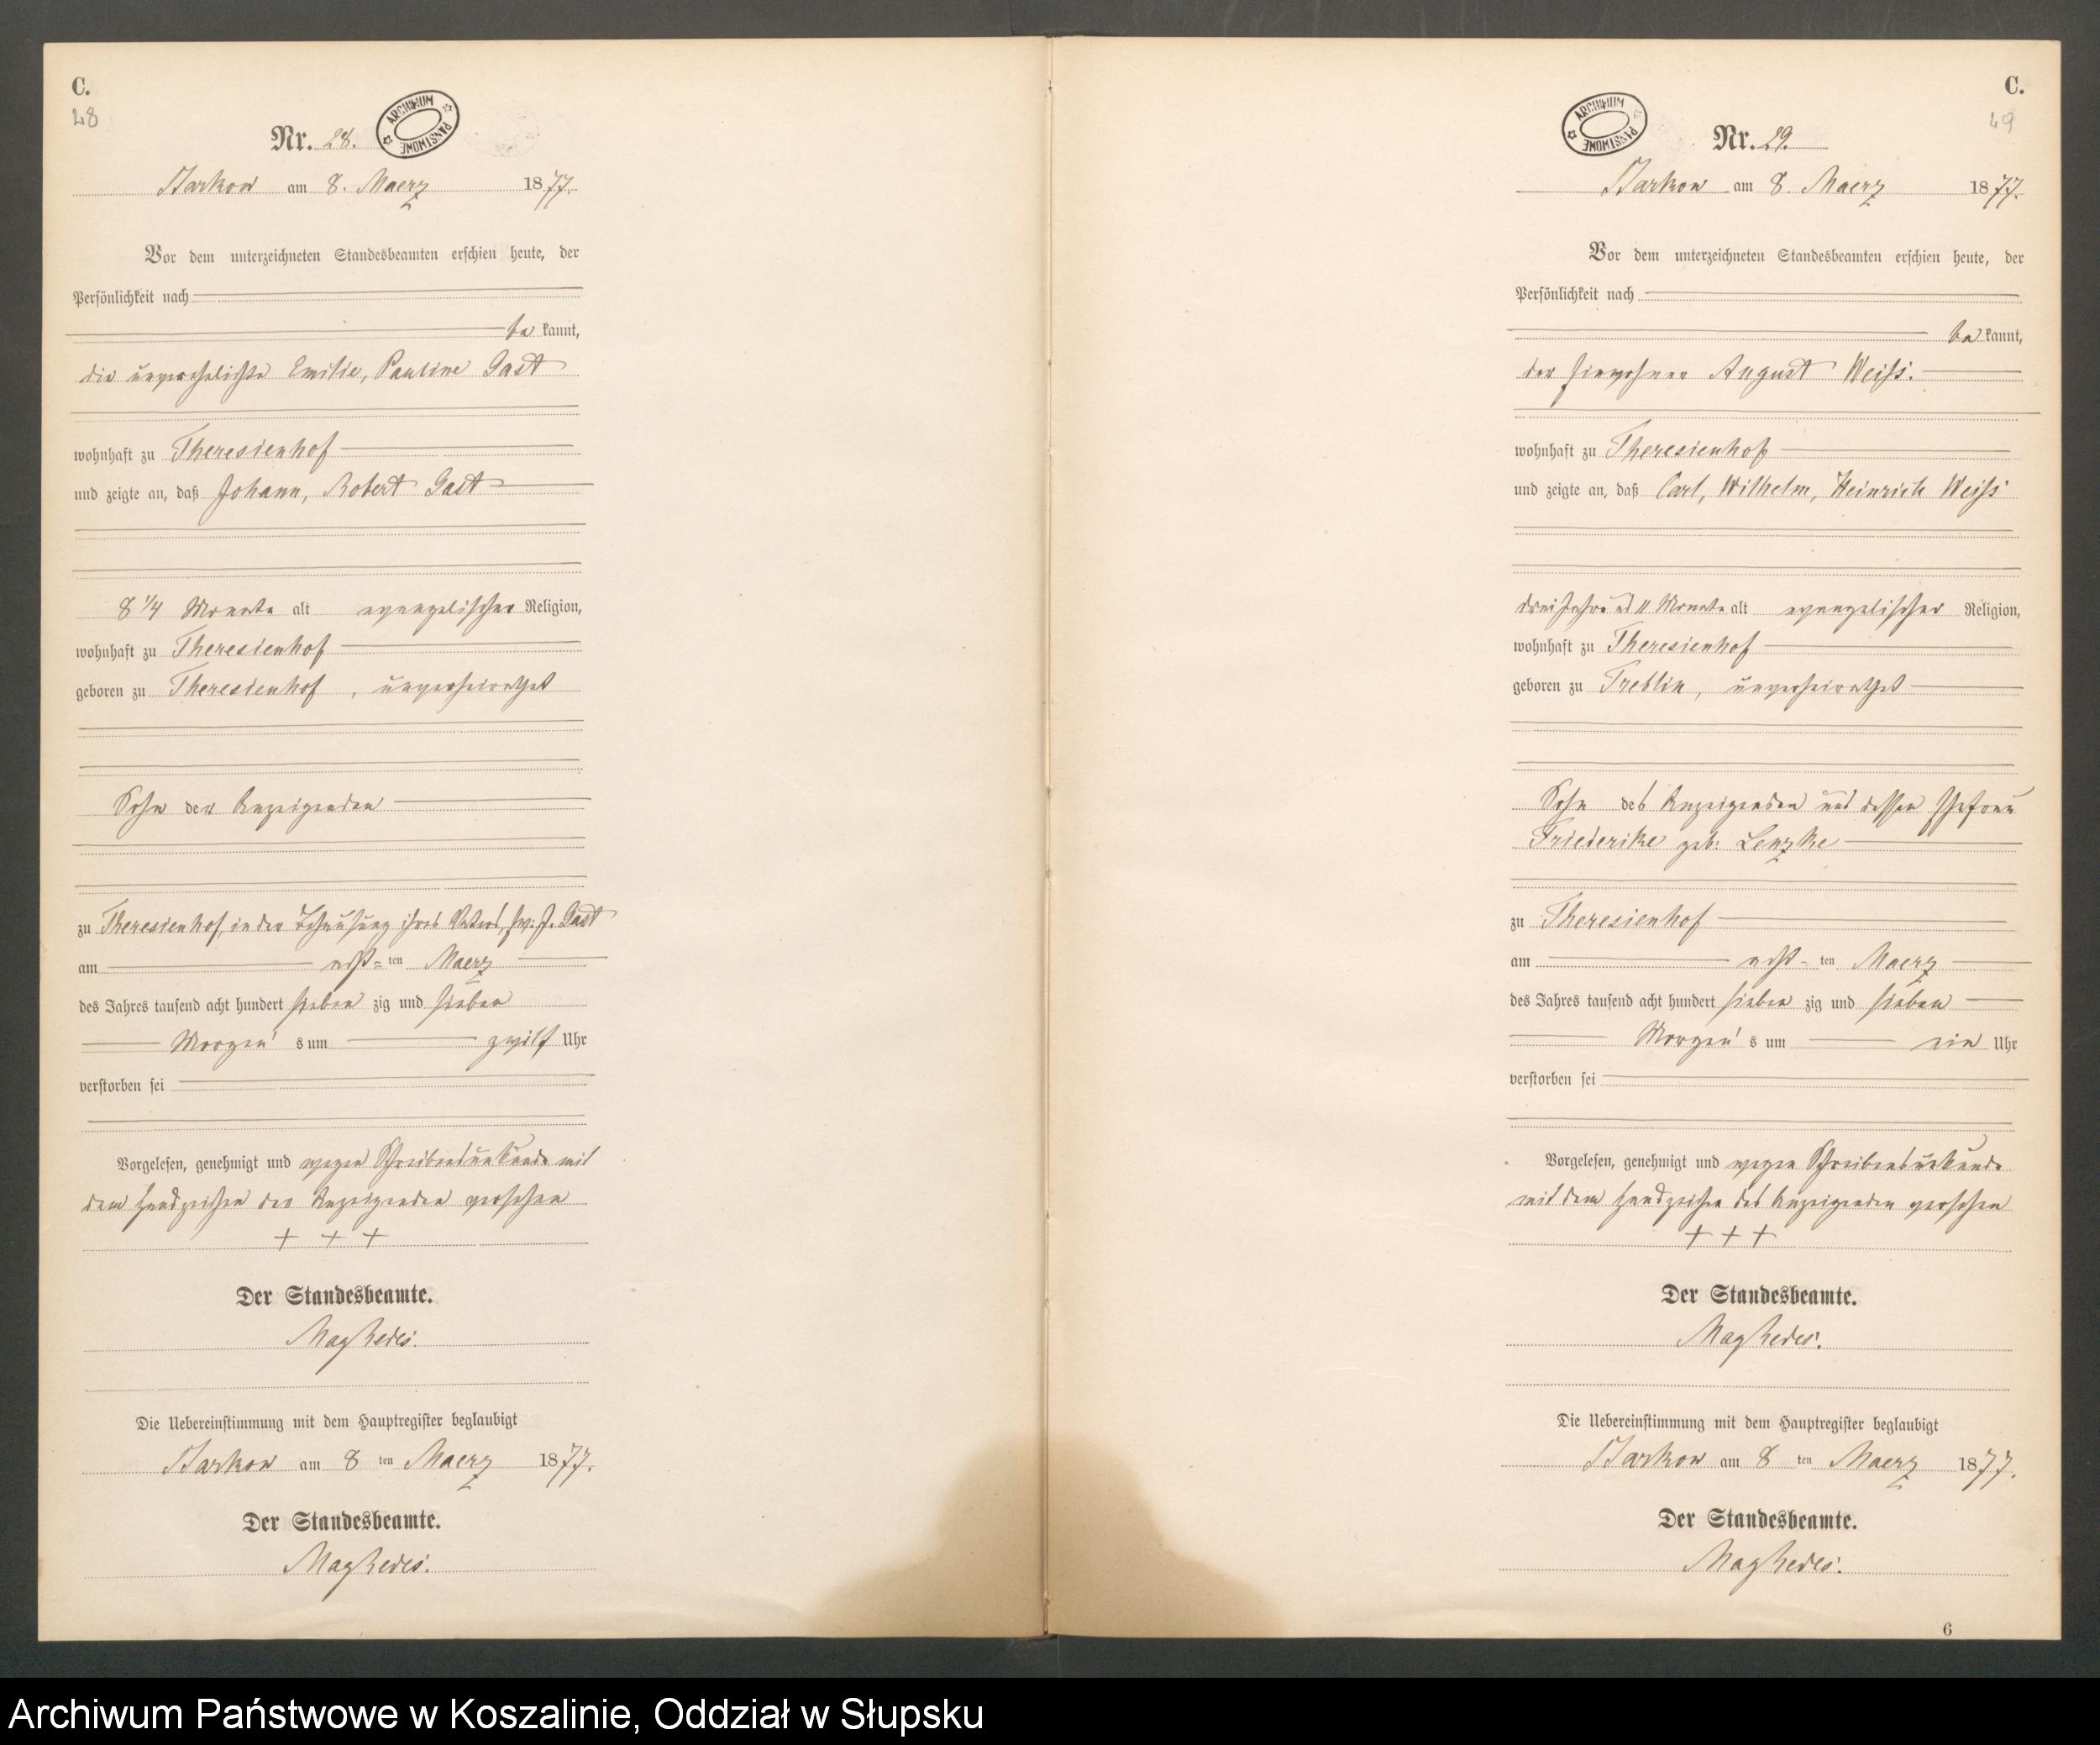 C.
28
Nr. 28.
ARCHIWUM PAŃSTWOWE
Starkow am 8. Maerz 1877.
Vor dem unterzeichneten Standesbeamten erschien heute, der
Persönlichkeit nach
be kannt,
die unverehelichte Emilie, Pauline Gast
wohnhaft zu Theresienhof
und zeigte an, daß Johann, Robert Gast
8 1/4 Monate alt evangelischer Religion,
wohnhaft zu Theresienhof
geboren zu Theresienhof, unverheirathet
Sohn der Anzeigenden
zu Theresienhof, in der Behausung ihres Vaters, J. Gast
am acht= ten Maerz
des Jahres tausend acht hundert sieben zig und sieben
Morgen s um zwölf Uhr
verstorben sei
Vorgelesen, genehmigt und wegen Schreibensunkunde mit
dem Handzeichen der Anzeigenden versehen
+ + +
Der Standesbeamte.
Die Uebereinstimmung mit dem Hauptregister beglaubigt
Starkow am 8 ten Maerz 1877.
Der Standesbeamte.
C.
29
ARCHIWUM PAŃSTWOWE
Nr. 29.
Starkow am 8. Maerz 1877.
Vor dem unterzeichneten Standesbeamten erschien heute, der
Persönlichkeit nach
be kannt,
der Einwohner August Weiss.
wohnhaft zu Theresienhof
und zeigte an, daß Carl, Wilhelm, Heinrich Weiss
drei Jahre und 11 Monate alt evangelischer Religion,
wohnhaft zu Theresienhof
geboren zu Treblin, unverheirathet
Sohn des Anzeigenden und dessen Ehefrau
Friederike geb: Lenzke
zu Theresienhof
am acht= ten Maerz
des Jahres tausend acht hundert sieben zig und sieben
Morgen s um ein Uhr
verstorben sei
Vorgelesen, genehmigt und wegen Schreibensunkunde
mit dem Handzeichen des Anzeigenden versehen
+ + +
Der Standesbeamte.
Die Uebereinstimmung mit dem Hauptregister beglaubigt
Starkow am 8 ten Maerz 1877.
Der Standesbeamte.
6
Archiwum Państwowe w Koszalinie, Oddział w Słupsku